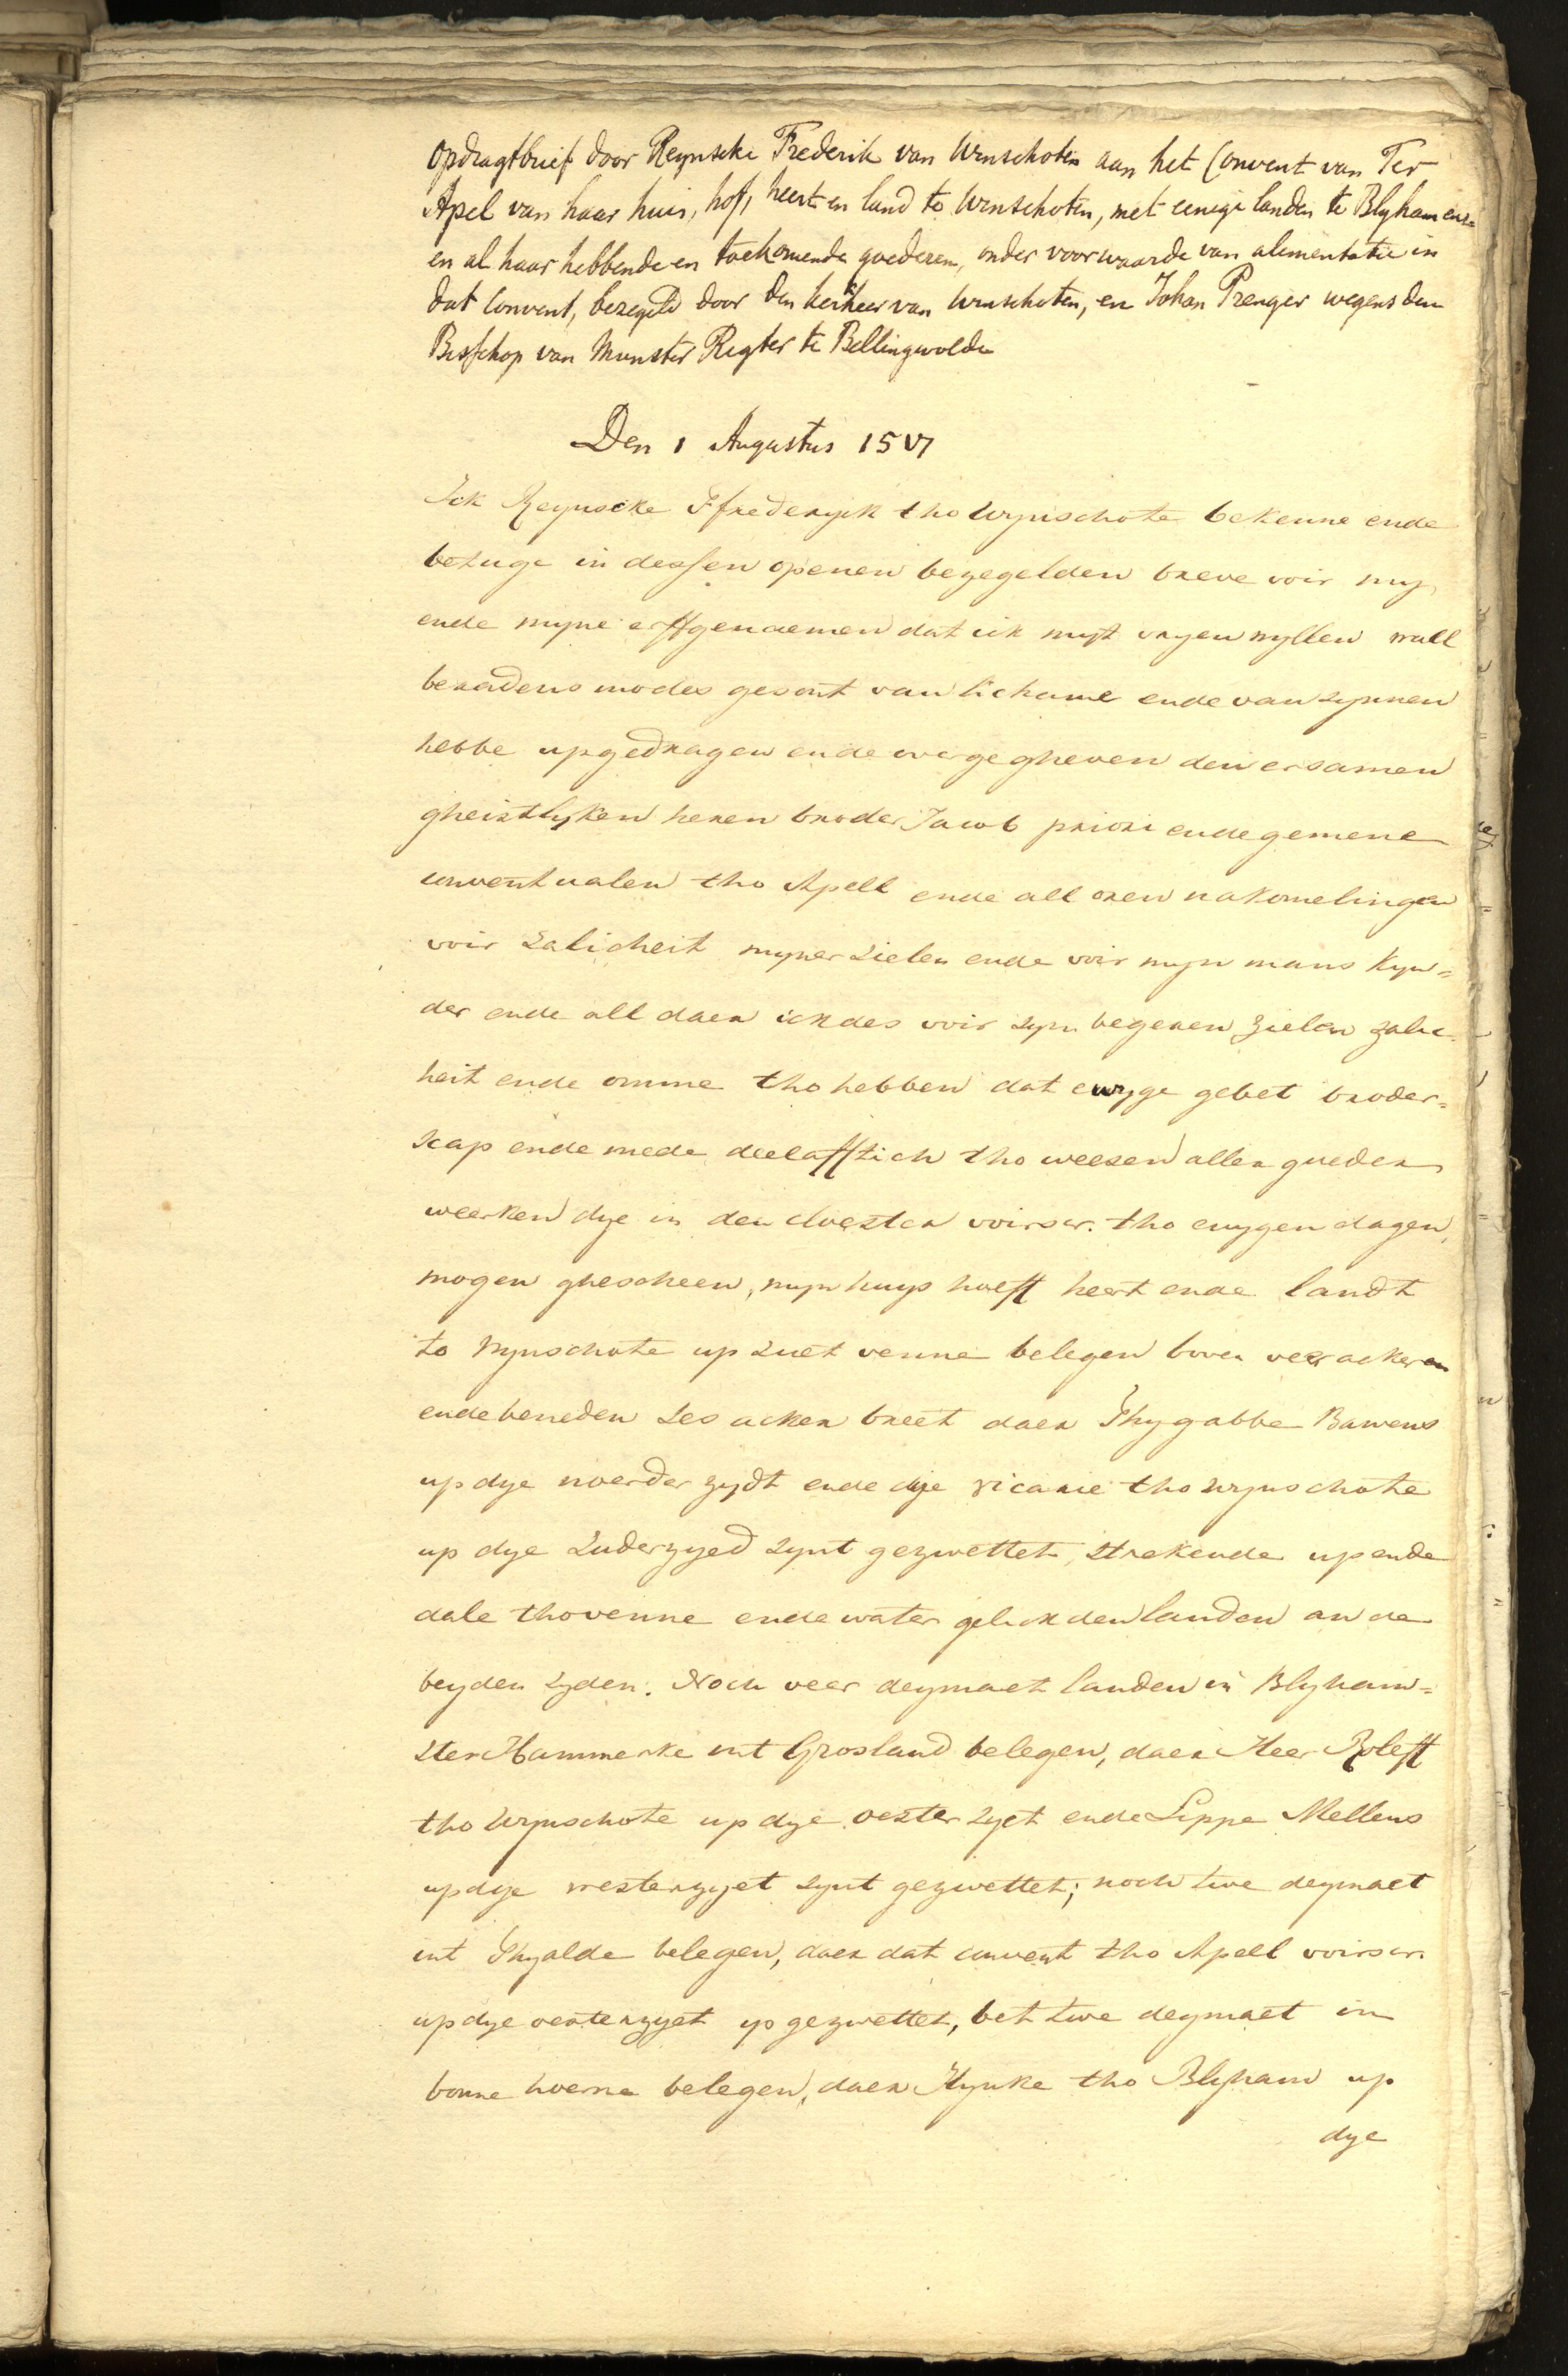 Opdragtbrief door Reynscke Frederik van Winschoten aan het Convent van Ter
Apel van haar huis, hof, heert en land to Winschoten, met eenige landen te Blyham enz
en al haar hebbende en toekomende goederen, onder voorwaarde van alimentatie in
dat Convent, bezegeld door den kerkheer van Winschoten, en Johan Prenger wegens den
Bisschop van Munster Regter te Bellingwolde
Den 1 Augustus 1517
Ick Reynscke Ffrederyck tho Wynschote bekenne ende
betuge in dessen openen bezegelden breve voir my
ende myne erffgenaemen dat ick myt vryen wyllen wall
beradens modes gesont van lichame ende van synnen
hebbe upgedragen ende overgegheven den ersamen
gheistlyken heren broder Jacob priori ende gemene
conventualen tho Apell ende all oren nakomelingen
voir salicheit myner sielen ende voir myn mans kyn=
der ende all daer ick des voir syn begeren zielen zalic
heit ende omme tho hebben dat ewyge gebet broder=
scap ende mede deelafftich tho weesen aller gueder
weerken dye in den cloester voirscr. tho ewygen dagen,
mogen ghescheen, myn huys hoeff heert ende landt
to Wynschote up suet venne belegen boven veer ackeren
ende beneden ses acker breet daer Thygabbe Bawens
up dye noerder zydt ende dye vicarie tho Wynschote
up dye suderzyed synt gezwettet, strekende up ende
dale tho venne ende water gelick den landen an de
beyden syden. Noch veer deymaet landen in Blyham=
ster Hammerke int Grosland belegen, daer Heer Roleff
tho Wynschote up dye oester syet ende Lippe Mellens
up dye westerzyet synt gezwettet; noch twe deymaet
int Thyalde belegen, daer dat convent tho Apell voirscr.
up dye oesterzyet ys gezwettet, bet twe deymaet in
bonne hoerne belegen, daer Hynke tho Blyham up
dye